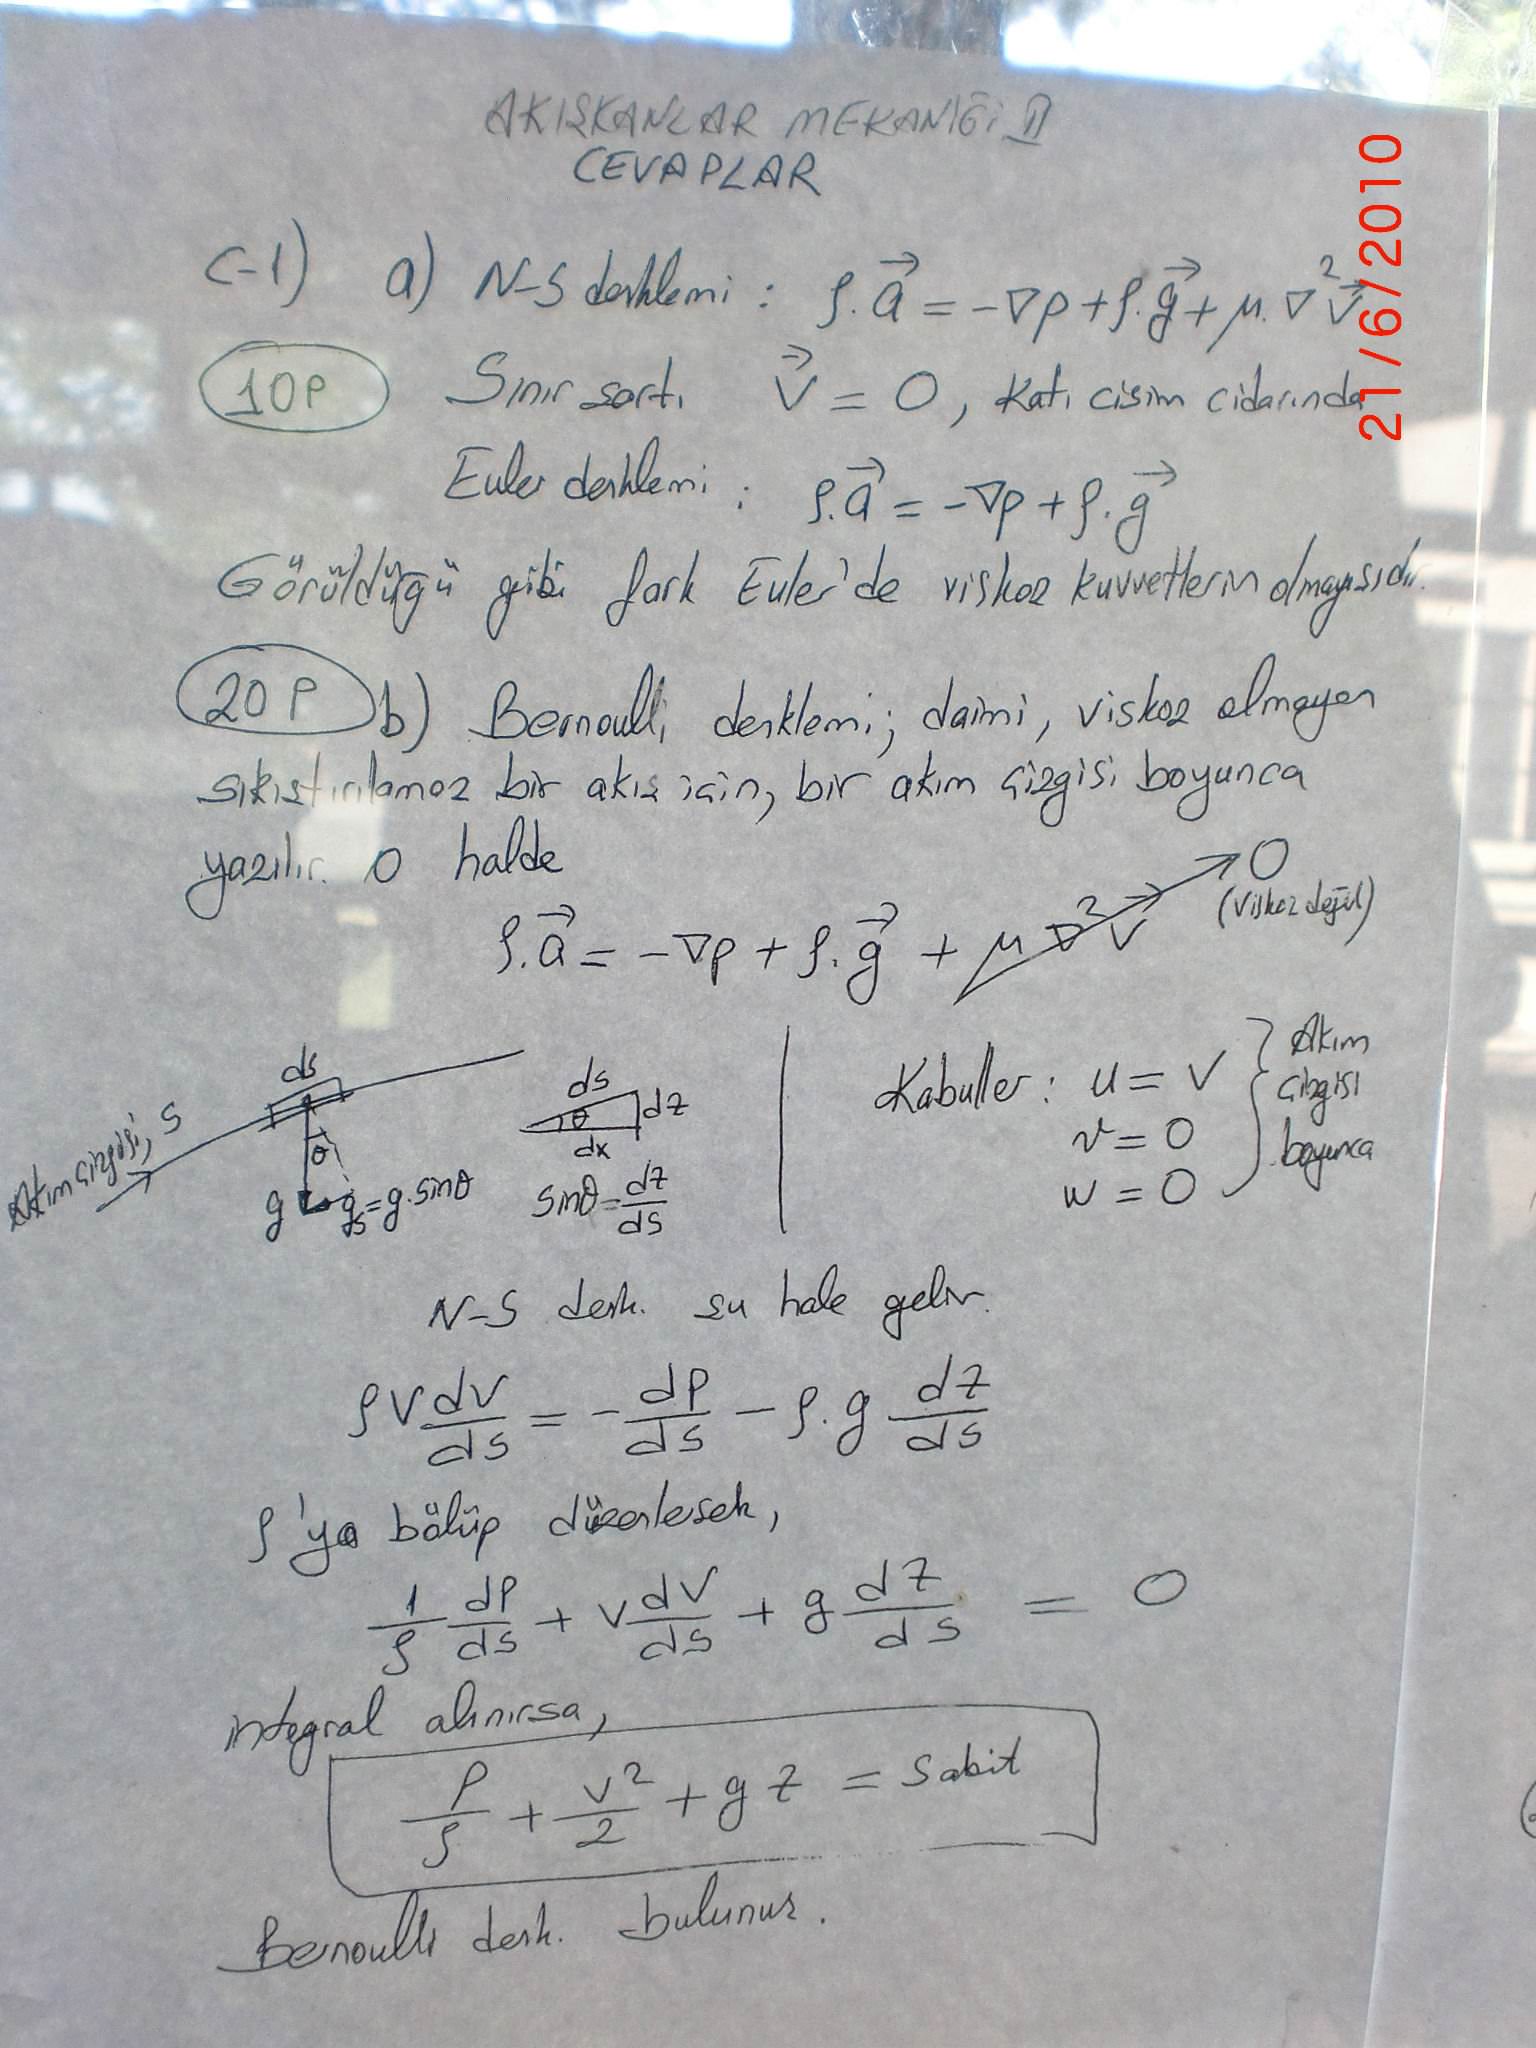 AKIŞKANLAR MEKANİĞİ II
CEVAPLAR
C-1) a) N-S denklemi : ρ.a⃗ = -∇p + ρ.g⃗ + μ.∇²V⃗
10P Sınır şartı V⃗ = 0, Katı cisim cidarında
Euler denklemi : ρ.a⃗ = -∇p + ρ.g⃗
Görüldüğü gibi fark Euler'de viskoz kuvvetlerin olmayışıdır.
20P b) Bernoulli denklemi; daimi, viskoz olmayan
sıkıştırılamaz bir akış için, bir akım çizgisi boyunca
yazılır. O halde
ρ.a⃗ = -∇p + ρ.g⃗ + μ∇²V⃗ → 0
(viskoz değil)
Akım çizgisi, s
ds
θ
g
gs = g.sinθ
ds
θ
dz
dx
sinθ = dz/ds
Kabuller : u = V
v = 0
w = 0
Akım
çizgisi
boyunca
N-S denk. şu hale gelir.
ρV dV/ds = - dp/ds - ρ.g dz/ds
ρ'ya bölüp düzenlersek,
1/ρ dp/ds + V dV/ds + g dz/ds = 0
integral alınırsa,
P/ρ + V²/2 + gz = Sabit
Bernoulli denk. bulunur.
21/6/2010